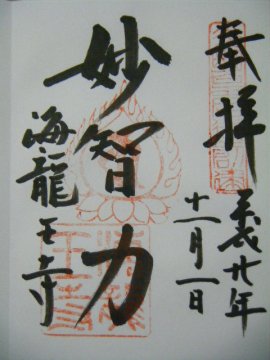 奉拝
平成廿年
十一月一日
妙智力
海龍王寺